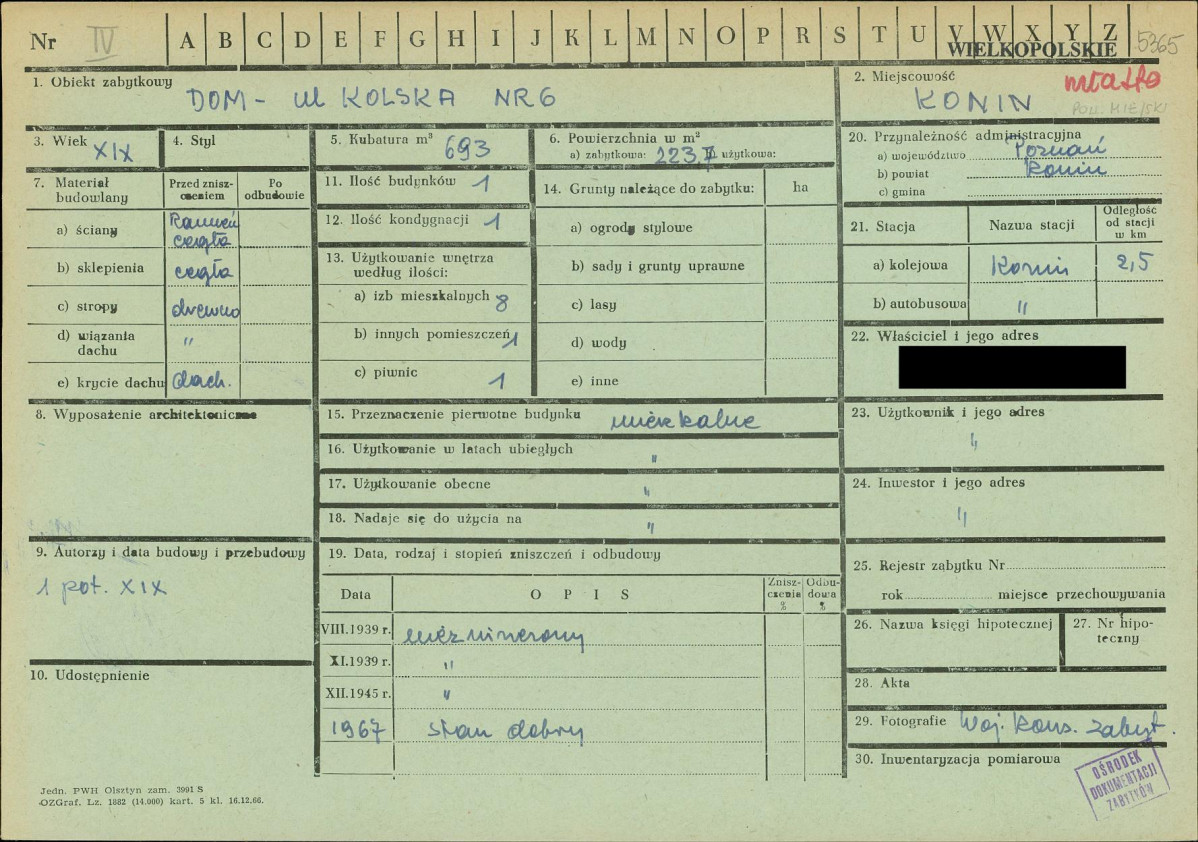 Nr IV A B C D E F G H I J K L M N O P R S T U V W X Y Z 5365
WIELKOPOLSKIE
1. Obiekt zabytkowy
DOM - ul KOLSKA NR 6
2. Miejscowość miasto
KONIN
POW. MIEJSKI
3. Wiek XIX
4. Styl
5. Kubatura m³ 693
6. Powierzchnia w m²
a) zabytkowa: 223,7 użytkowa:
20. Przynależność administracyjna
a) województwo Poznań
b) powiat Konin
c) gmina
7. Materiał budowlany
Przed znisz-
czeniem
Po
odbudowie
a) ściany Kamień
cegła
b) sklepienia cegła
c) stropy drewno
d) wiązania
dachu "
e) krycie dachu dach.
11. Ilość budynków 1
12. Ilość kondygnacji 1
13. Użytkowanie wnętrza
według ilości:
a) izb mieszkalnych 8
b) innych pomieszczeń 1
c) piwnic 1
14. Grunty należące do zabytku: ha
a) ogrody stylowe
b) sady i grunty uprawne
c) lasy
d) wody
e) inne
21. Stacja Nazwa stacji
Odległość
od stacji
w km
a) kolejowa Konin 2,5
b) autobusowa "
22. Właściciel i jego adres
8. Wyposażenie architektoniczne
15. Przeznaczenie pierwotne budynku mieszkalne
16. Użytkowanie w latach ubiegłych "
17. Użytkowanie obecne "
18. Nadaje się do użycia na "
23. Użytkownik i jego adres
"
24. Inwestor i jego adres
"
9. Autorzy i data budowy i przebudowy
1 poł. XIX
19. Data, rodzaj i stopień zniszczeń i odbudowy
Data OPIS
Znisz-
czenia
%
Odbu-
dowa
%
VIII.1939 r. niezniszczony
XI.1939 r. "
XII.1945 r. "
1967 stan dobry
25. Rejestr zabytku Nr
rok miejsce przechowywania
26. Nazwa księgi hipotecznej
27. Nr hipo-
teczny
10. Udostępnienie
28. Akta
29. Fotografie Woj. Kons. zabyt.
30. Inwentaryzacja pomiarowa
OŚRODEK
DOKUMENTACJI
ZABYTKÓW
Jedn. PWH Olsztyn zam. 3991 S
OZGraf. Lz. 1882 (14.000) kart. 5 kl. 16.12.66.